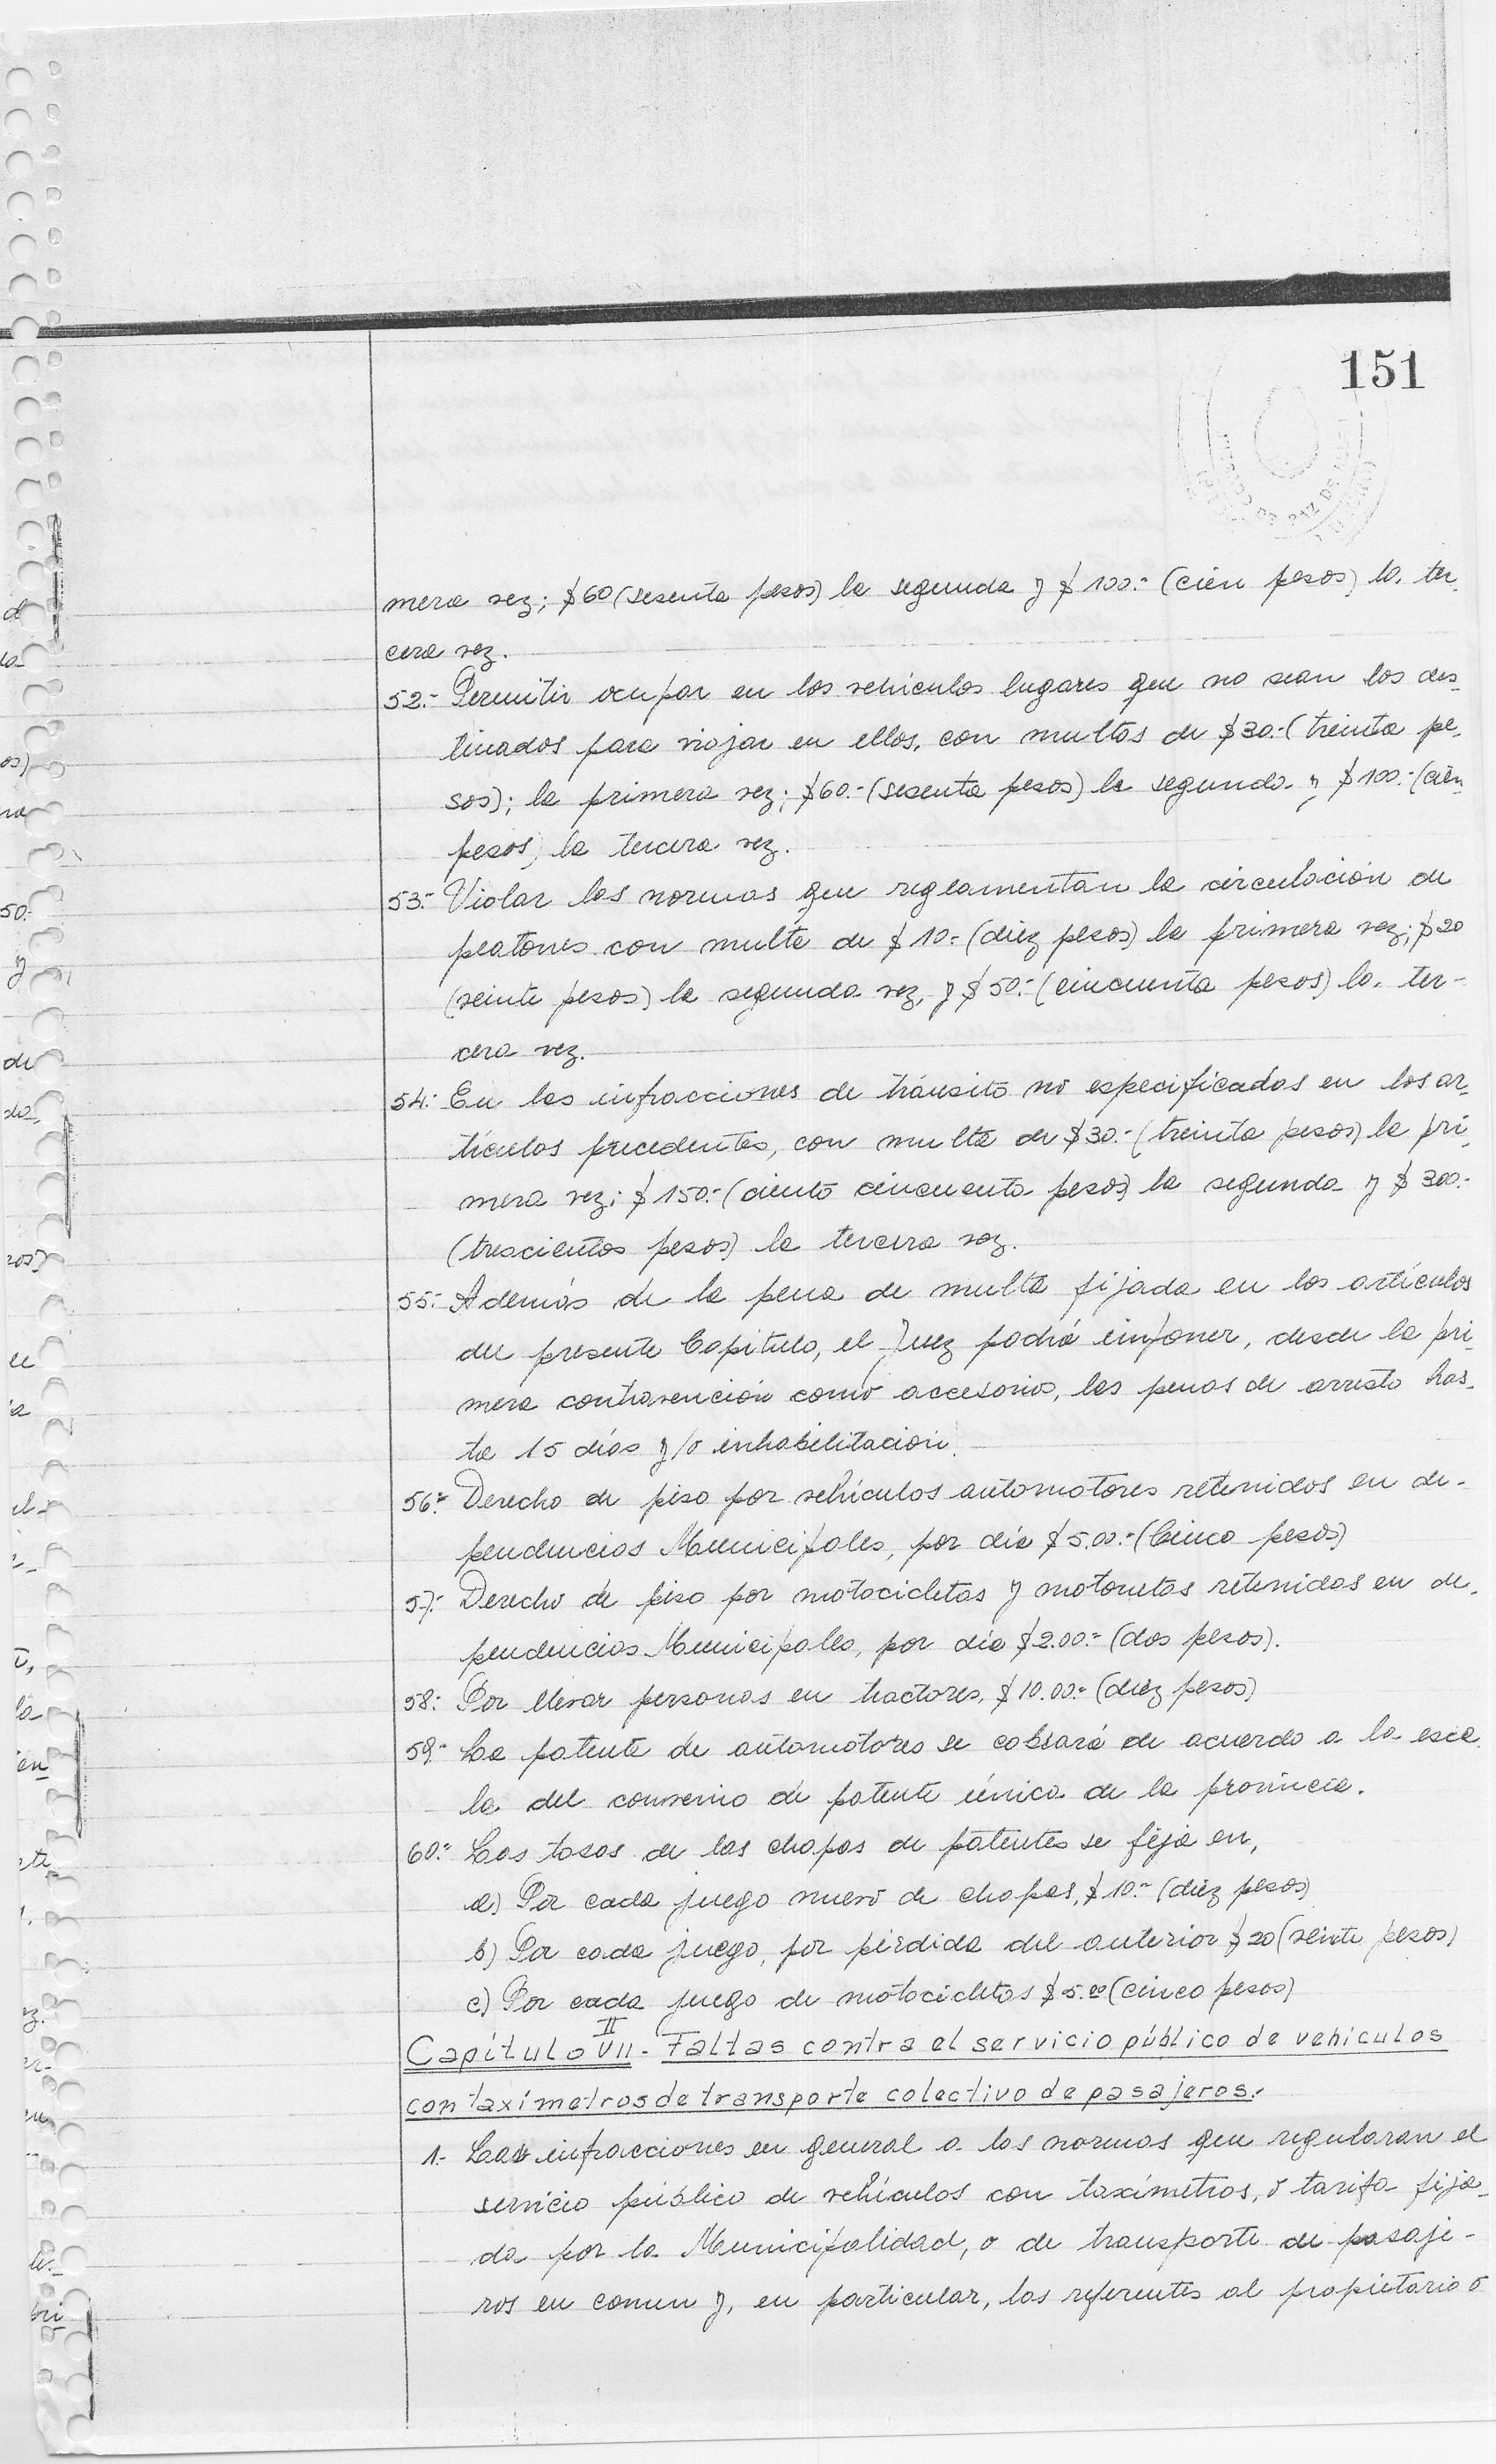 151
mera vez; $60 (sesenta pesos) la segunda y $ 100.- (cien pesos) la ter-
cera vez.
52.- Permitir ocupar en los vehículos lugares que no sean los des-
tinados para viajar en ellos, con multas de $30.- (treinta pe-
sos); la primera vez; $60.- (sesenta pesos) la segunda y $100.- (cien
pesos) la tercera vez.
53.- Violar las normas que reglamentan la circulación de
peatones con multa de $ 10.- (diez pesos) la primera vez; $20
(veinte pesos) la segunda vez, y $50.- (cincuenta pesos) la ter-
cera vez.
54.- En las infracciones de tránsito no especificadas en los ar-
tículos precedentes, con multa de $30.- (treinta pesos) la pri-
mera vez; $150.- (ciento cincuenta pesos) la segunda y $ 300.-
(trescientos pesos) la tercera vez.
55.- Además de la pena de multa fijada en los artículos
del presente Capitulo, el Juez podrá imponer, desde la pri-
mera contravención como accesorios, las penas de arresto has-
ta 15 días y/o inhabilitación.
56.- Derecho de piso por vehículos automotores retenidos en de-
pendencias Municipales, por día $5.00.- (Cinco pesos)
57.- Derecho de piso por motocicletas y motonetas retenidas en de-
pendencias Municipales, por día $2.00.- (dos pesos).
58.- Por llevar personas en tractores, $10.00.- (diez pesos)
59.- La patente de automotores se cobrará de acuerdo a la esca
la del convenio de patente única de la provincia.
60.- Las tasas de las chapas de patentes se fija en,
a) Por cada juego nuevo de chapas, $10.- (diez pesos)
b) Por cada juego, por pérdida del anterior $20 (veinte pesos)
c) Por cada juego de motocicletas $5.00 (cinco pesos)
II
Capítulo VII - Faltas contra el servicio público de vehiculos
con taxímetros de transporte colectivo de pasajeros.-
1.- Las infracciones en general a las normas que regularan el
servicio público de vehículos con taxímetros, o tarifa fija-
da por la Municipalidad, o de transporte de pasaje-
ros en comun y, en particular, las referentes al propietario o